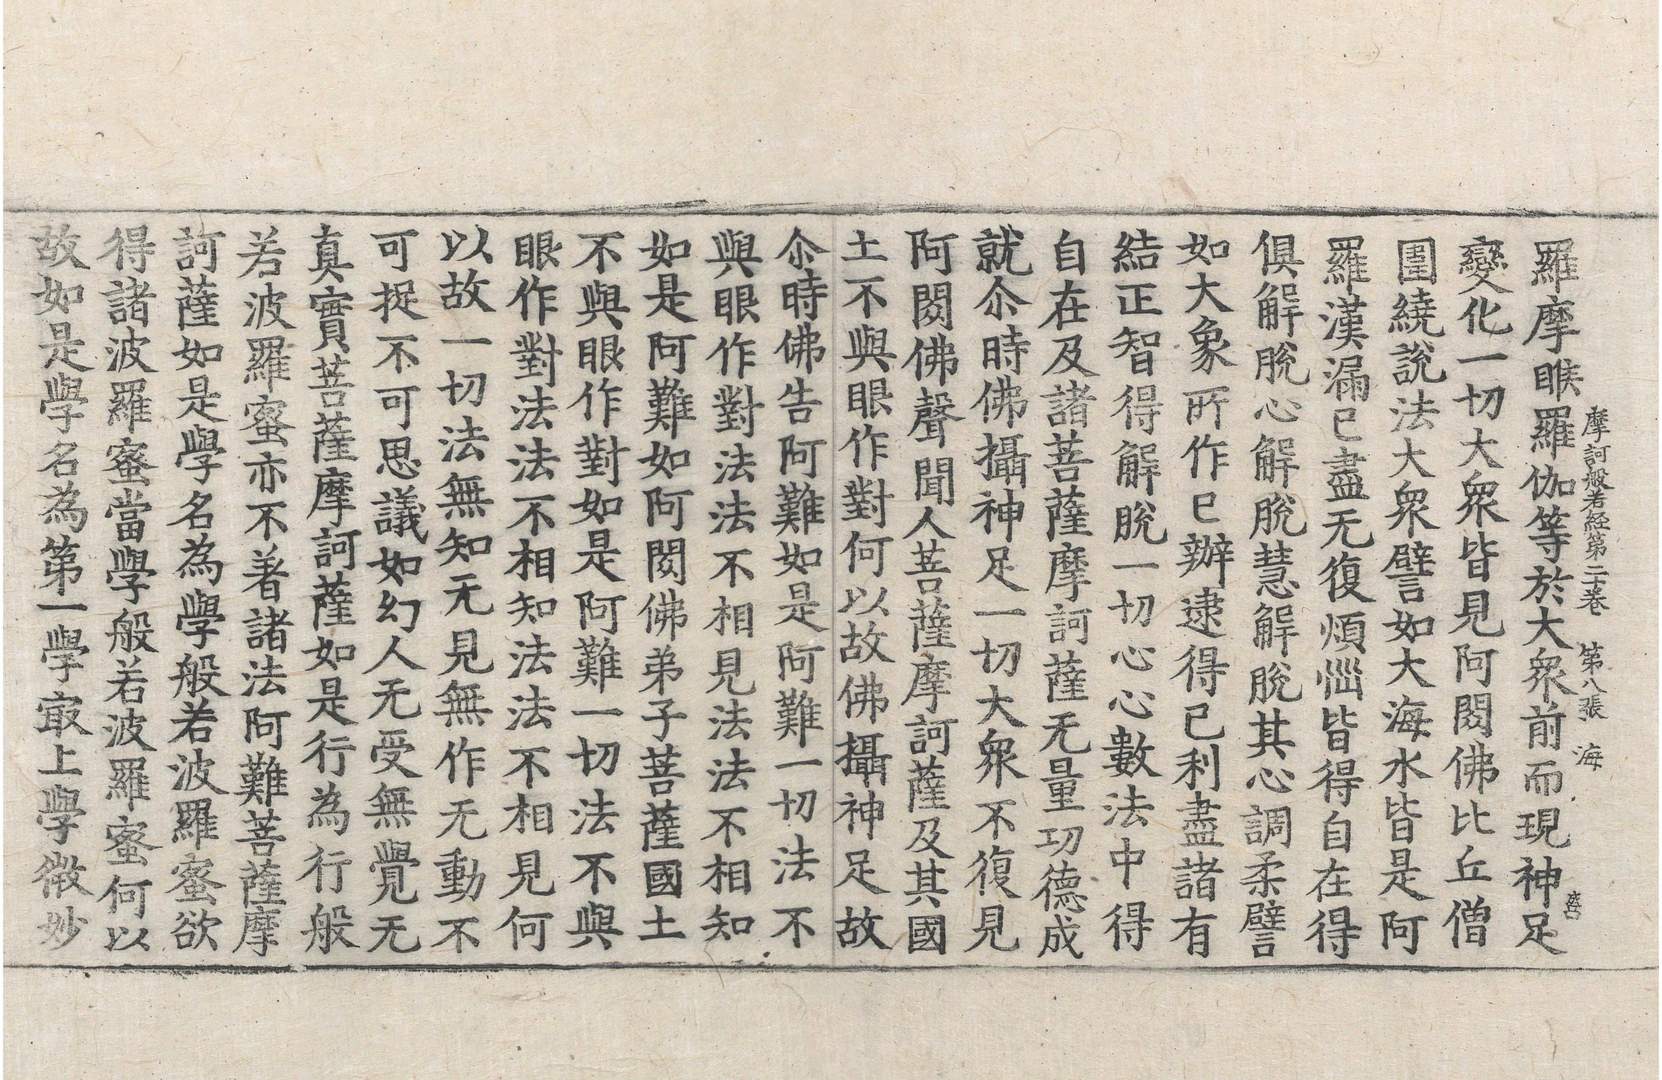 摩訶般若経第二十卷　第八張　海
善
羅摩睺羅伽等於大衆前而現神足
變化一切大衆皆見阿閦佛比丘僧
圍繞說法大衆譬如大海水皆是阿
羅漢漏已盡无復煩惱皆得自在得
俱解脫心解脫慧解脫其心調柔譬
如大象所作已辦逮得己利盡諸有
結正智得解脫一切心心數法中得
自在及諸菩薩摩訶薩无量功德成
就尒時佛攝神足一切大衆不復見
阿閦佛聲聞人菩薩摩訶薩及其國
土不與眼作對何以故佛攝神足故
尒時佛告阿難如是阿難一切法不
與眼作對法法不相見法法不相知
如是阿難如阿閦佛弟子菩薩國土
不與眼作對如是阿難一切法不與
眼作對法法不相知法法不相見何
以故一切法無知无見無作无動不
可捉不可思議如幻人无受無覺无
真實菩薩摩訶薩如是行為行般
若波羅蜜亦不著諸法阿難菩薩摩
訶薩如是學名為學般若波羅蜜欲
得諸波羅蜜當學般若波羅蜜何以
故如是學名為第一學㝡上學微妙